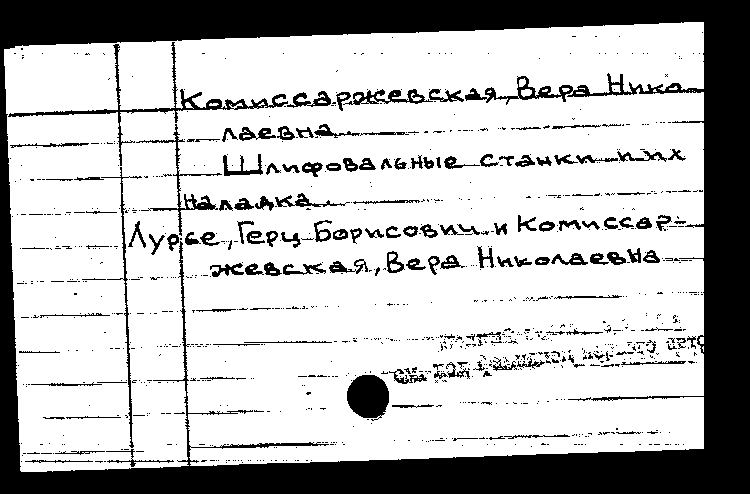 Комиссаржевская, Вера Нико
лаевна.
Шлифовальные станки и их
наладка.
Лурье, Герц Борисович и Комиссар-
жевская, Вера Николаевна
см. под фамилией